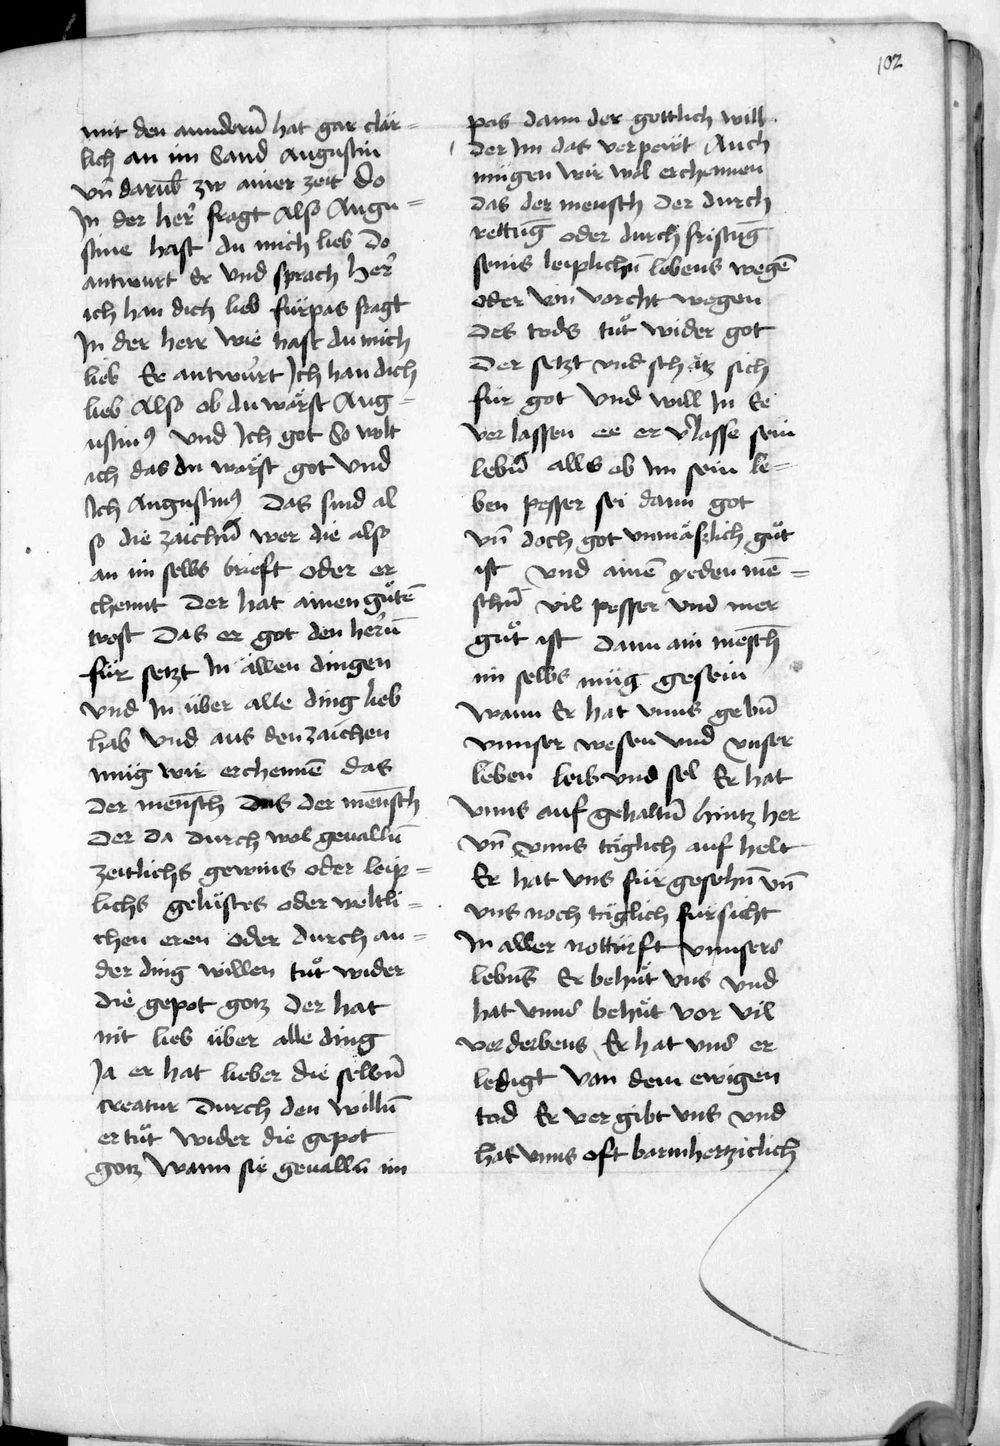 102
mit den annderñ hat gar clär=
lich an im Sand Augustin
vñ darub̄ zw ainer zeit do
In der her᷑ fragt Also Augu=
stine hast du mich lieb Do
antwurt Er vnd sprach Her᷑
ich han dich lieb fürpas fragt
In der herr wie hast du mich
lieb Er antwurt Ich han dich
lieb Also ob du wärst Aug=
ustin9 vnd Ich got So wolt
ich das du wärst got vnd
Ich Augustin9 Das sind al
so die zaichn̄ wer die also
an im selbs brieft oder er
chennt Der hat ainen gůtē
trost Das er got den herrn̄
für setzt In allen dingen
vnd In über alle ding lieb
hab vnd aus den zaichen
müg wir erchennē das
der men̄sch das der men̄sch
der da durch wol geuallñ
zeitlichs gewins oder leip=
lichs gelüstes oder weltli=
chen eren oder durch an=
der ding willen tůt wider
die gepot gotz der hat
nit lieb über alle ding
Ja er hat lieber die selbn̄
creatur durch den willn̄
er tůt wider die gepot
gotz wann sie geualln̄ im
pas dann der gottlich will
der im das verpewt Auch
mügen wir wol erchennen
das der mensch der durch
rettūg oder durch fristūg
seins leiplichn̄ lebens wegē
oder von vorcht wegen
des tods tůt wider got
der setzt vnd schätz sich
für got vnd will In Ee
verlassen ee er v᷑lasse sein
lebn̄ alls ob im sein le=
ben pesser sei dann got
vñ doch got vnmäszlich gůt
ist vnd ainē yeden mē=
schn̄ vil pesser vnd mer
gůt ist dann ain mēsch
im selbs müg gesein
wann Er hat vnns gebn̄
vnnser wesen vnd vnser
leben leib vnd sel Er hat
vnns auf gehaltn̄ hintz her
vñ vnns täglich auf helt
Er hat vns für gesehn̄ vñ
vns noch täglich fürsicht
In aller notturft vnnsers
lebn̄s Er behůt vns vnd
hat vnns behůt vor vil
verderbens Er hat vns er
ledigt von dem ewigen
tod Er vergibt vns vnd
hat vnns oft barmhertziclich